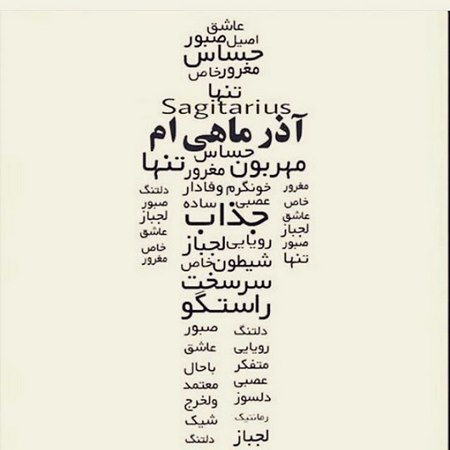 عاشق
اصیل صبور
حساس
مغرور خاص
تنها
Sagitarius
آذر ماهی ام
حساس
مهربون مغرور تنها
مغرور خونگرم وفادار دلتنگ
خاص عصبی ساده صبور
عاشق جذاب لجباز
لجباز رویایی لجباز عاشق
صبور خاص
تنها شیطون خاص مغرور
سرسخت
راستگو
دلتنگ صبور
رویایی عاشق
متفکر باحال
عصبی معتمد
دلسوز ولخرج
رمانتیک شیک
لجباز دلتنگ